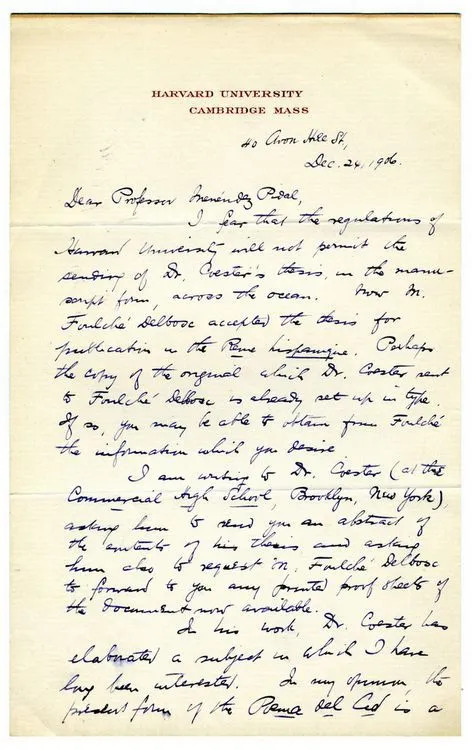 HARVARD UNIVERSITY
CAMBRIDGE MASS
40 Avon Hill St,
Dec. 24, 1906.
Dear Professor Menéndez Pidal,
I fear that the regulations of
Harvard University will not permit the
sending of Dr. Coester's thesis, in the manu-
script form, across the ocean. Now M.
Foulché Delbosc accepted the thesis for
publication in the Revue hispanique. Perhaps
the copy of the original which Dr. Coester sent
to Foulché Delbosc is already set up in type.
If so, you may be able to obtain from Foulché
the information which you desire
I am writing to Dr. Coester (at the
Commercial High School, Brooklyn, New York),
asking him to send you an abstract of
the contents of his thesis and asking
him also to request M. Foulché Delbosc
to forward to you any printed proof sheets of
the document now available.
In his work, Dr. Coester has
elaborated a subject in which I have
long been interested. In my opinion, the
present form of the Poema del Cid is a